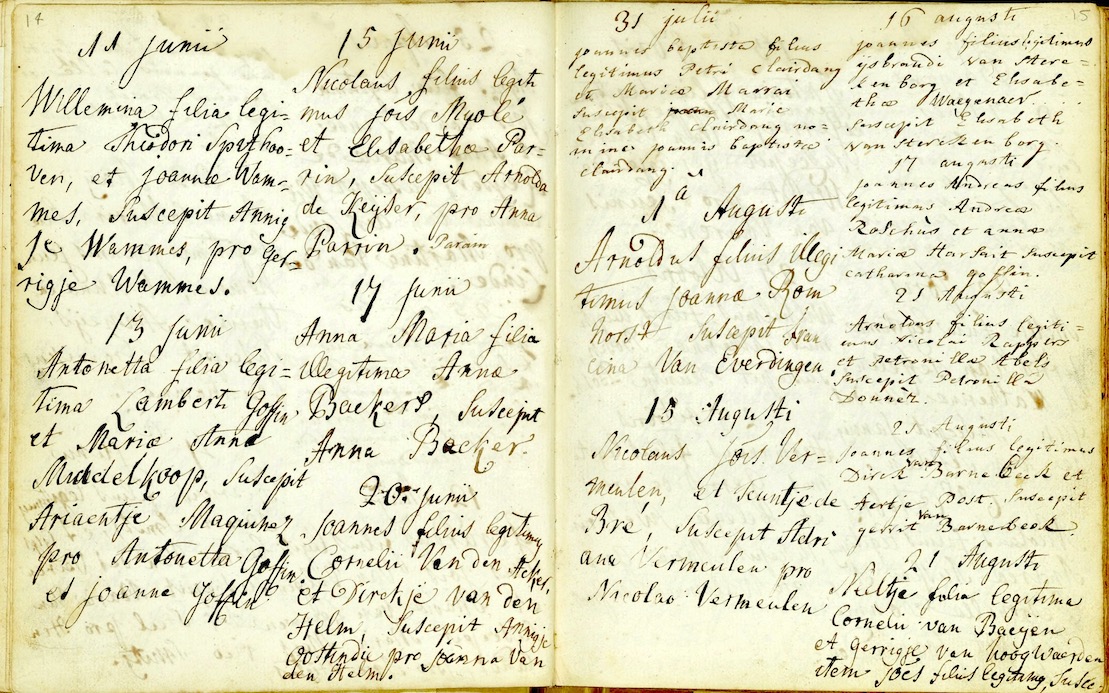 14
11 Junii
Willemina filia legi=
tima Thiodori Spithoo=
ven, et Joannæ Wam=
mes, Suscepit Annig
je Wammes, pro Ger=
rigje Wammes.
13 Junii
Antonetta filia legi=
tima Lamberti Goffin
et Mariæ Annæ
Middelkoop, Suscepit
Ariaentje Magiunez
pro Antonetta Goffin
et Joanne Goffin
15 Junii
Nicolaus filius legiti
mus Jois Myolé
et Elisabethæ Par=
rin, Suscepit Arnolda
de Keyser, pro Anna
Parrin. Param
17 Junii
Anna Maria filia
illegitima Annæ
Backers, Suscepit
Anna Backer.
20 Junii
Joannes filius legitimus
Cornelii Van den Acker,
et Dirckje van den
Helm, Suscepit Annigje
Oostindie pro Joanna Van
den Helm.
31 julii
joannes baptista filius
legitimus Petri Clairdang
et Mariæ Marrai
Suscepit Marie
Elisabeth Clairdang no=
mine joannis baptistæ
clairdang.
1â Augusti
Arnoldus filius illegi
timus Joannæ Rom
horst Suscepit Fran
cina Van Everdingen.
15 Augusti
Nicolaus Jois Ver=
meulen, et Teuntje de
Bré, Suscepit Adri
ana Vermeulen pro
Nicolao Vermeulen
15
16 augusti
joannes filius legitimus
ijsbrandi van Stere=
kenborg et Elisabe=
thæ Waegenaer.
Suscepit Elisabeth
van Sterckenborg.
17 augusti
joannes Andreas filius
legitimus Andreæ
Raschus et annæ
Mariæ Harsait Suscepit
catharina goffin.
21 Augusti
Arnoldus filius legiti=
mus Nicolai Rappers
et Petronillæ Abels
Suscepit Petronilla
Donnez.
21 Augusti
Joannes filius legitimus
Dirck van Barneveck et
Aertje Post. Suscepit
gerrit van Barnebeek.
21 Augusti
Neltje filia legitima
Cornelii van Baeijen
et Gerrigje van hoogWaerden
item Joes filius legitimus Susce=